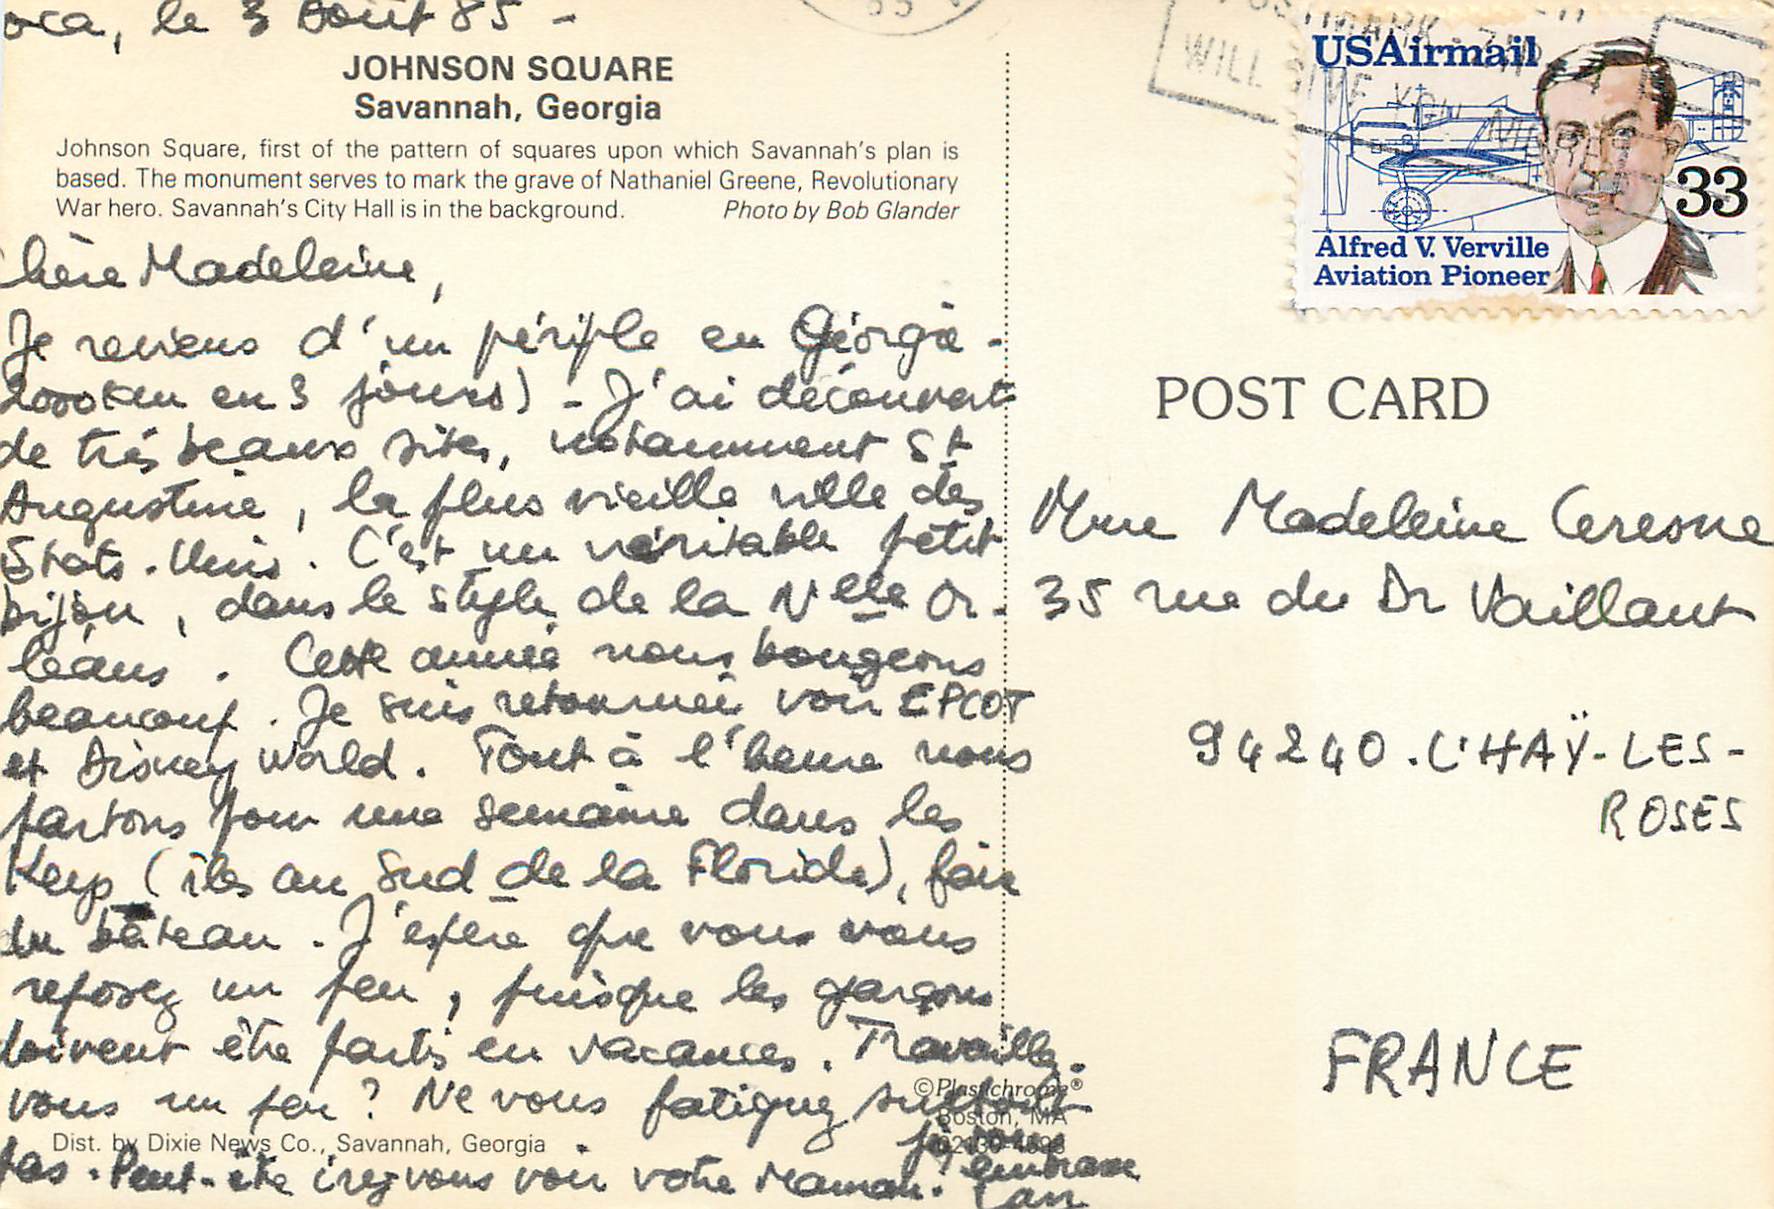 oca, le 3 Août 85 -
JOHNSON SQUARE
Savannah, Georgia
Johnson Square, first of the pattern of squares upon which Savannah's plan is
based. The monument serves to mark the grave of Nathaniel Greene, Revolutionary
War hero. Savannah's City Hall is in the background. Photo by Bob Glander
hère Madeleine,
Je reviens d'un périple en Géorgie -
2000 km en 3 jours) - J'ai découvert
de très beaux sites, notamment St
Augustine, la plus vieille ville des
Etats-Unis. C'est un véritable petit
bijou, dans le style de la Nlle Or-
léans. Cette année nous bougeons
beaucoup. Je suis retournée voir EPCOT
et Disney World. Tout à l'heure nous
partons pour une semaine dans les
Keys (îles au Sud de la Floride), faire
du bâteau. J'espère que vous vous
reposez un peu, puisque les garçons
doivent être partis en vacances. Travaillez-
vous un peu? Ne vous fatiguez surtout
pas. Peut-être irez vous voir votre Maman.
je vous
embrasse
©Plastichrome®
Boston, MA
Dist. by Dixie News Co., Savannah, Georgia
WILL GIVE YOU
USAirmail
33
Alfred V. Verville
Aviation Pioneer
POST CARD
Mme Madeleine Ceresne
35 rue du Dr Vaillant
94240. L'HAŸ-LES-
ROSES
FRANCE